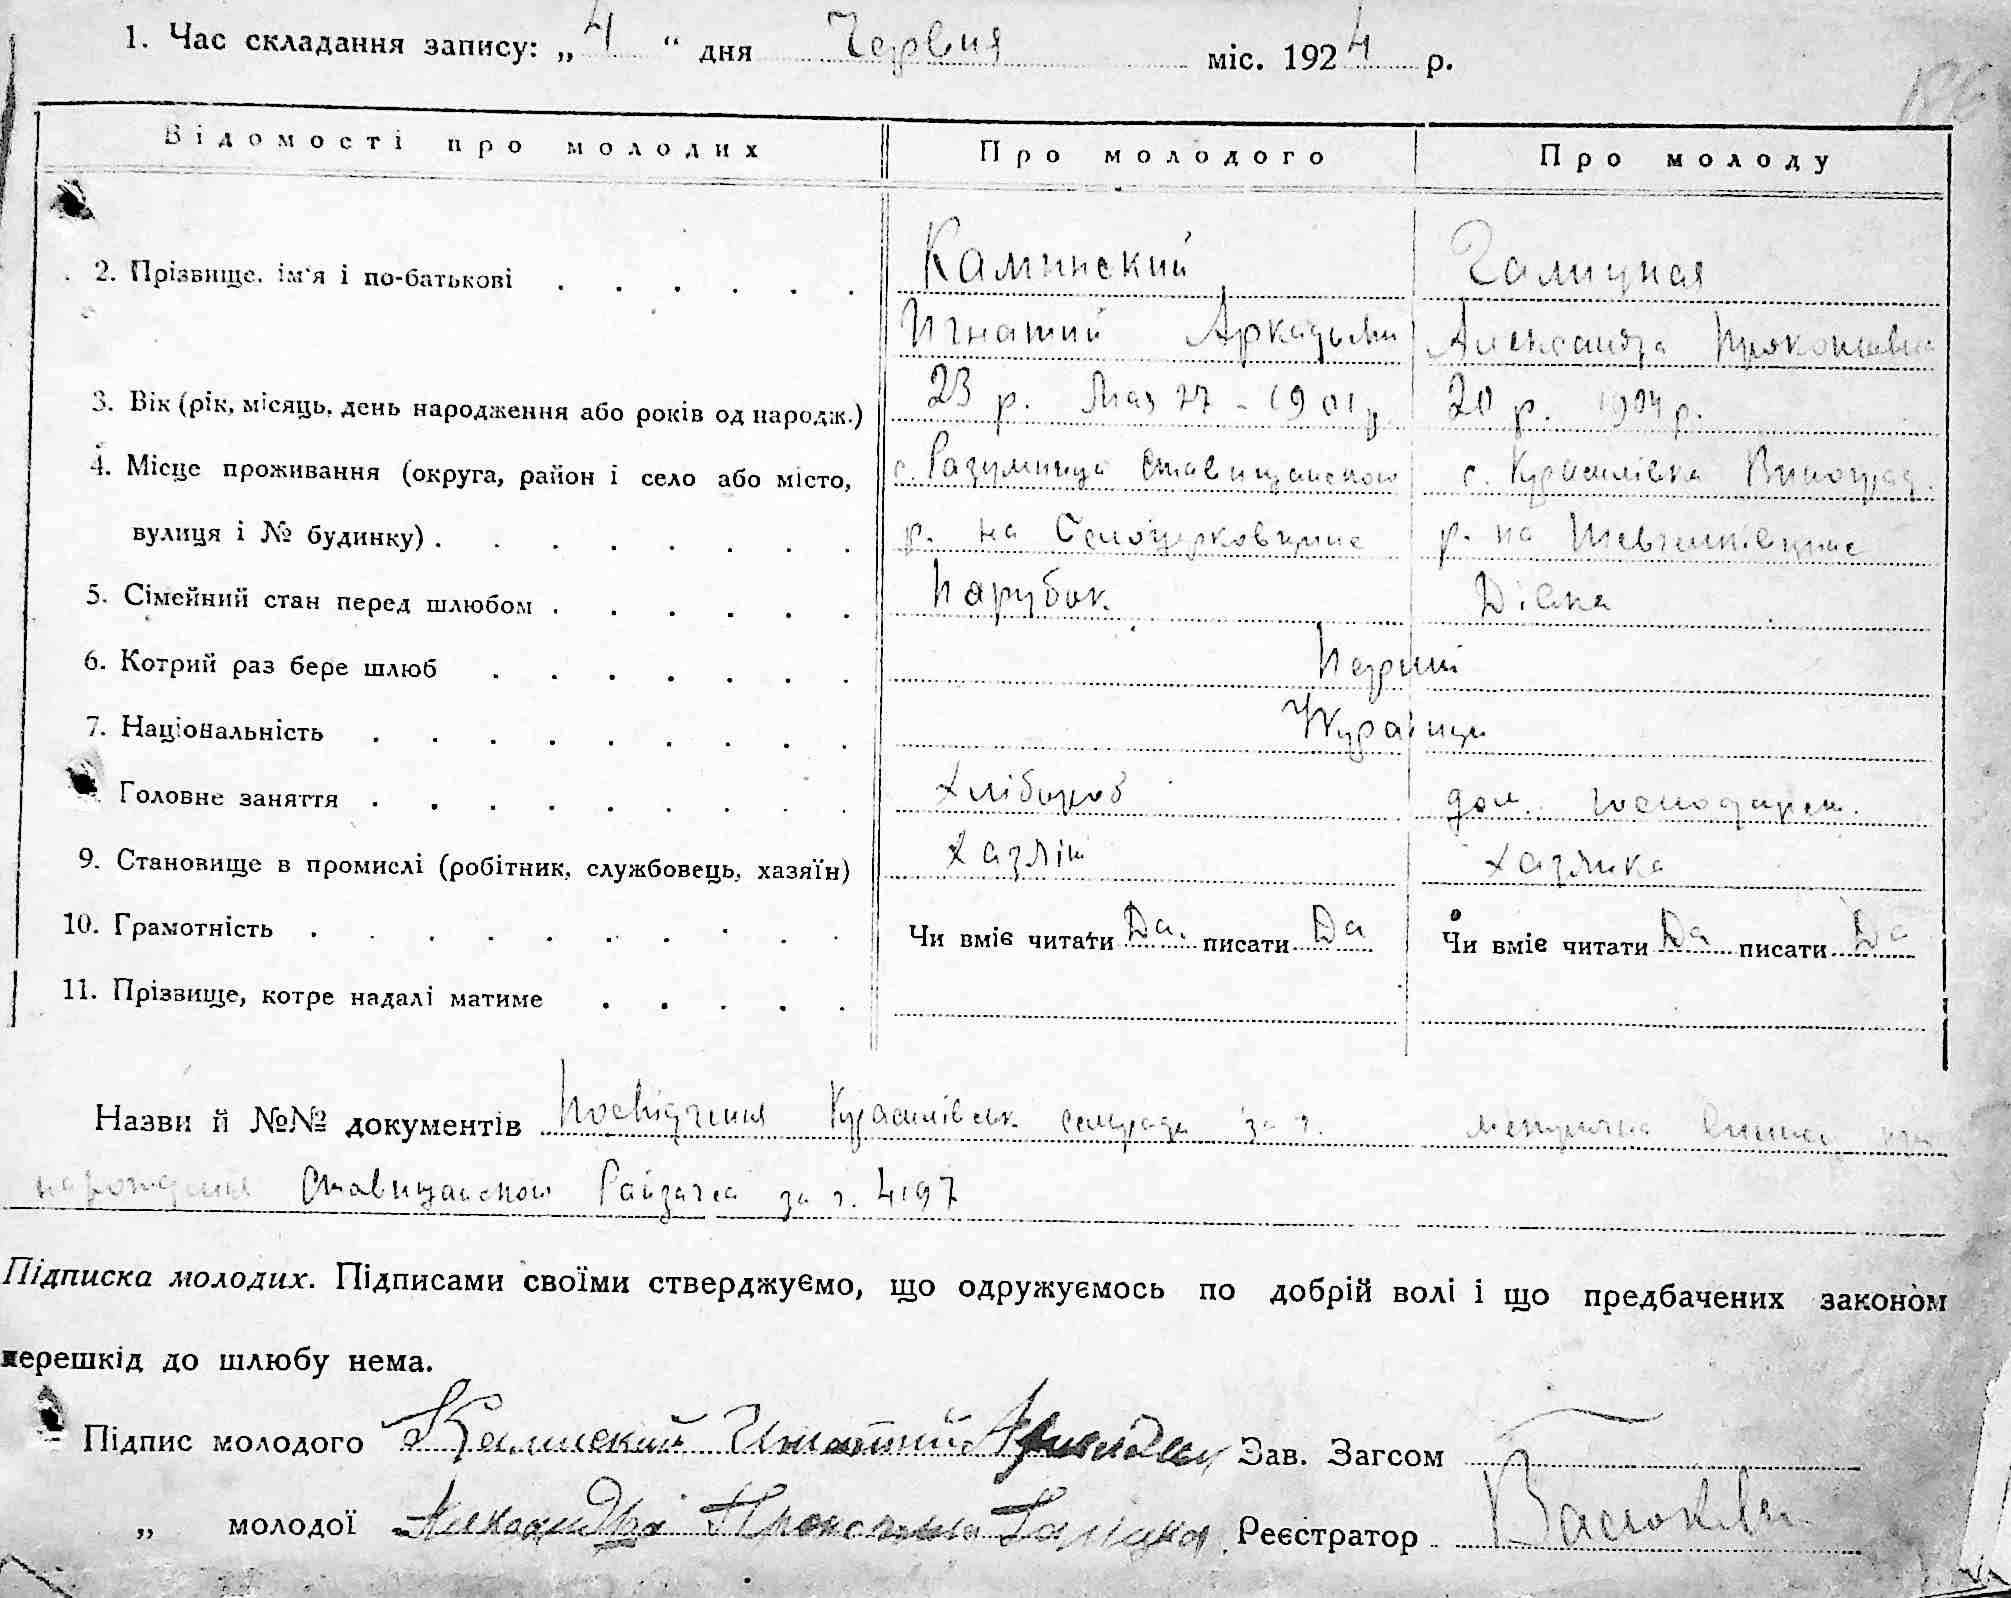 1. Час складання запису: „ 4 “ дня Червня міс. 1924 р.
Відомості про молодих Про молодого Про молоду
2. Прізвище, ім'я і по-батькові Каминский Галицкая
Игнатий Аркадьев Александра Прокопиевна
3. Вік (рік, місяць, день народження або років од народж.) 23 р. Мая 27 - 1901 р. 20 р. 1904 р.
4. Місце проживання (округа, район і село або місто, с. Разумниця Ставищанского с. Красилівка Виноград.
вулиця і № будинку) р. на Білоцерковщине р. на Шевченківщине
5. Сімейний стан перед шлюбом Парубок Дівка
6. Котрий раз бере шлюб Перший
7. Національність Українци
Головне заняття Хлібороб дом. господарст.
9. Становище в промислі (робітник, службовець, хазяїн) Хазяін Хазяйка
10. Грамотність Чи вміє читати Да. писати Да Чи вміє читати Да писати Да
11. Прізвище, котре надалі матиме
Назви й №№ документів Посвідчення Красилівськ. сельради за г. метрична виписка про
народження Ставищанского Райзагса за г. 4197
Підписка молодих. Підписами своїми стверджуємо, що одружуємось по добрій волі і що предбачених законом
перешкід до шлюбу нема.
Підпис молодого Каминский Игнатий Зав. Загсом
„ молодої Александра Галицка Реєстратор